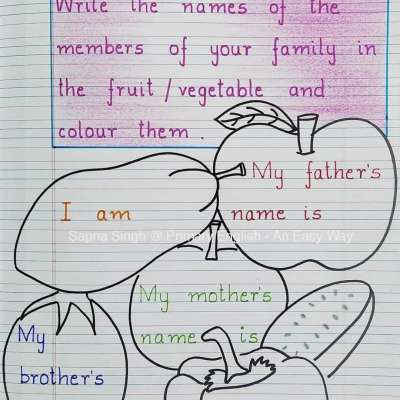 Write the names of the
members of your family in
the fruit / vegetable and
colour them.
My father's
name is
I am
Sapna Singh @ Primary English - An Easy Way
My mother's
name is
My
brother's